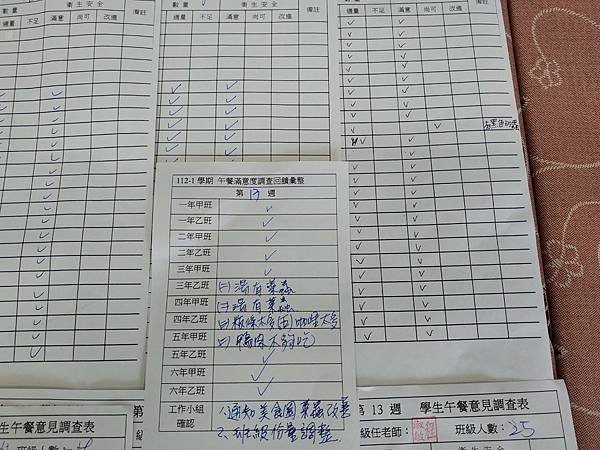 數量
衛生安全
備註
適量 不足 滿意 尚可 改進
數量
衛生安全
備註
適量 不足 滿意 尚可 改進
數量
衛生安全
備註
適量 不足 滿意 尚可 改進
112-1 學期 午餐滿意度調查回饋彙整
第 13 週
一年甲班 ✓
一年乙班 ✓
二年甲班 ✓
二年乙班 ✓
三年甲班 ✓
三年乙班 (二)湯有菜蟲
四年甲班 湯有菜蟲
四年乙班 粄條太多(四)咖哩太多
五年甲班 鴨條不夠吃
五年乙班 ✓
六年甲班 ✓
六年乙班 ✓
工作小組 1.通知美食園菜蟲改善
確認 2.班級份量調整
生午餐意見調查表
班級人數:
第
第 13 週 學生午餐意見調查表
級任老師: 班級人數:25